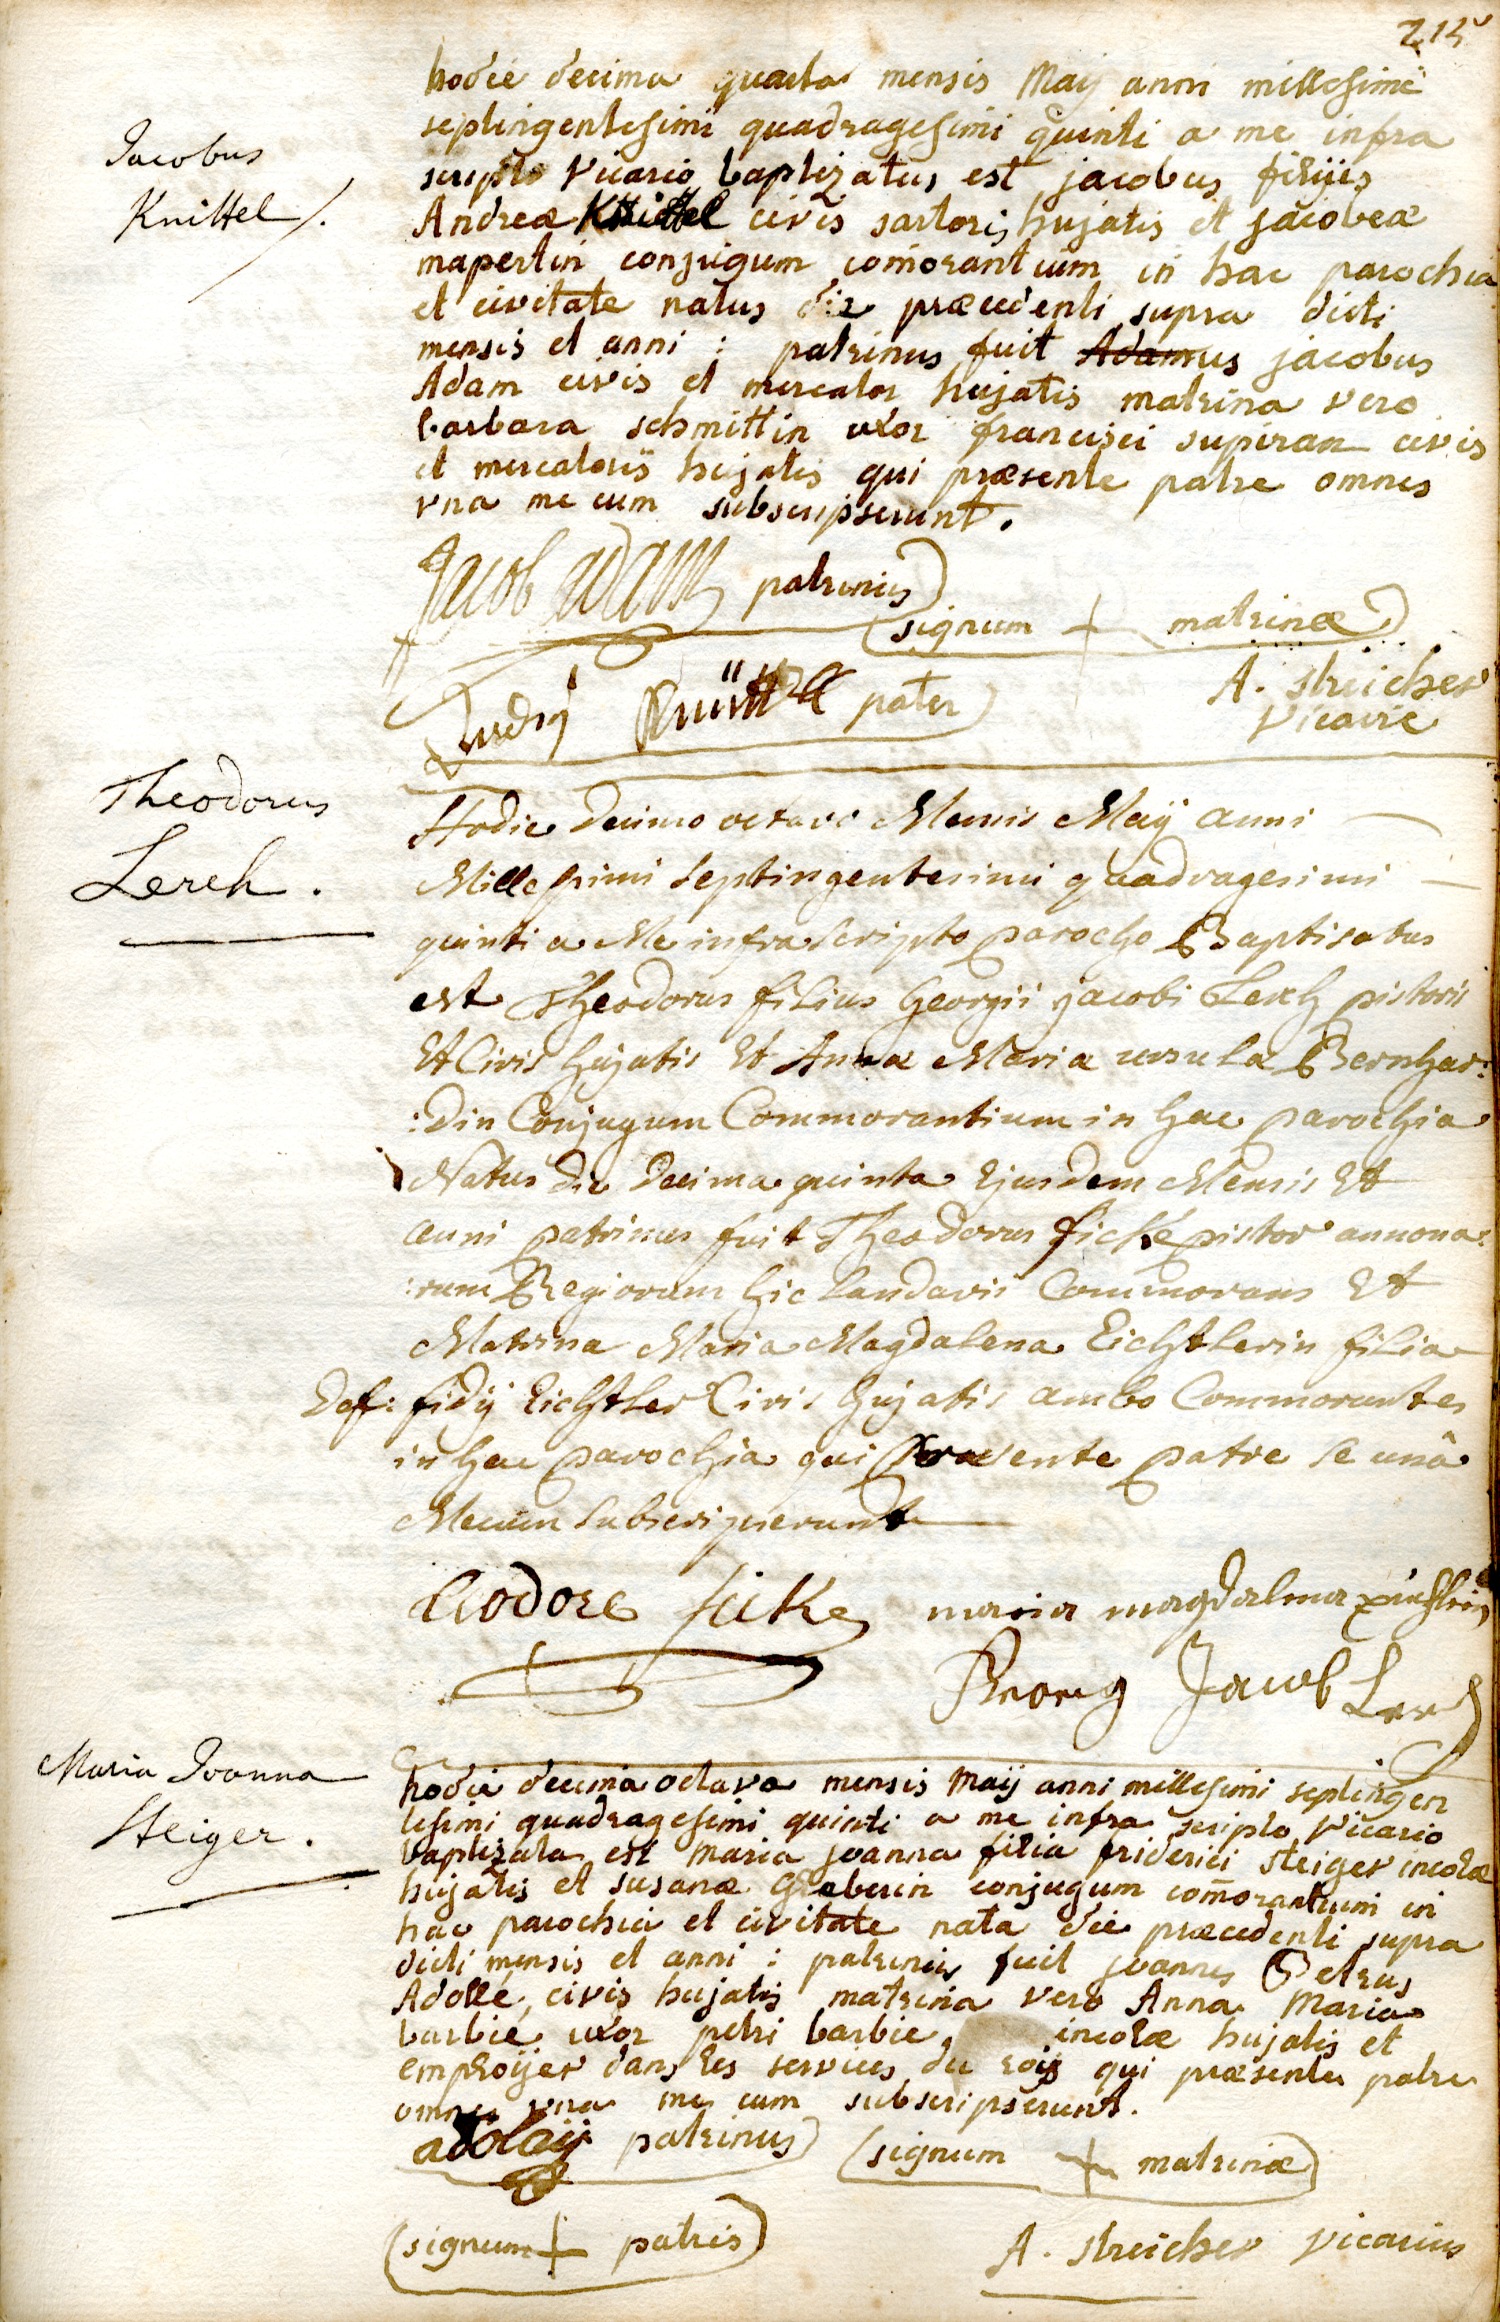 215
Jacobus
Knittel
hodie decima quarta mensis Maij anni millesimi
septingentesimi quadragesimi quinti a me infra
scripto vicario baptizatus est jacobus filius
Andreæ Knittel civis sartoris hujatis et jacobeæ
mapertin conjugum com̄orantium in hac parochia
et civitate natus die præcedenti supra dicti
mensis et anni : patrinus fuit Adamus jacobus
Adam civis et mercator hujatis matrina vero
barbara schmittin uxor francisci supiran civis
et mercatoris hujatis qui præsente patre omnes
vna me cum subscripserunt.
Jacob adam patrinus
signum + matrinæ
Knüttel pater
A. streicher
vicarie
Theodorus
Lerch.
Hodie Decimo octavo Mensis Maij anni
Millesimi Septingentesimi quadragesimi
quinti a Me infra Scripto parocho Baptisatus
est Theodorus filius Georgii jacobi Lerch pistoris
Et Civis hujatis Et Annæ Maria ursula Bernhar:
:din Conjugum Commorantium in hac parochia
Natus die Decima quinta Ejusdem Mensis Et
anni patrinus fuit Theodorus fické pistor annona:
:rum Regiorum hic Landavii Commorans Et
Matrina Maria Magdalena Eichtlerin filia
Def: fidij Eichtler Civis hujatis ambo Commorantes
in hac parochia qui Præsente patre se unâ
Mecum Subscripserunt
Tiodore ficke maria magdalena
Georg Jacob Lerch
Maria Joanna
Steiger.
hodie decima octava mensis Maij anni millesimi septingen
tesimi quadragesimi quinti a me infra scripto vicario
baptizata est Maria joanna filia friderici steiger incolæ
hujatis et susanæ Graberin conjugum com̄orantium in
hac parochia et civitate nata die præcedenti supra
dicti mensis et anni : patrinus fuit joannes Petrus
Adollé, civis hujatis matrina vero Anna Maria
barbie uxor petri barbie incolæ hujatis et
emploijer dans les services du roij qui præsente patre
omnes vna me cum subscripserunt.
adoleij patrinus signum + matrinæ
signum + patris A. streicher vicarius